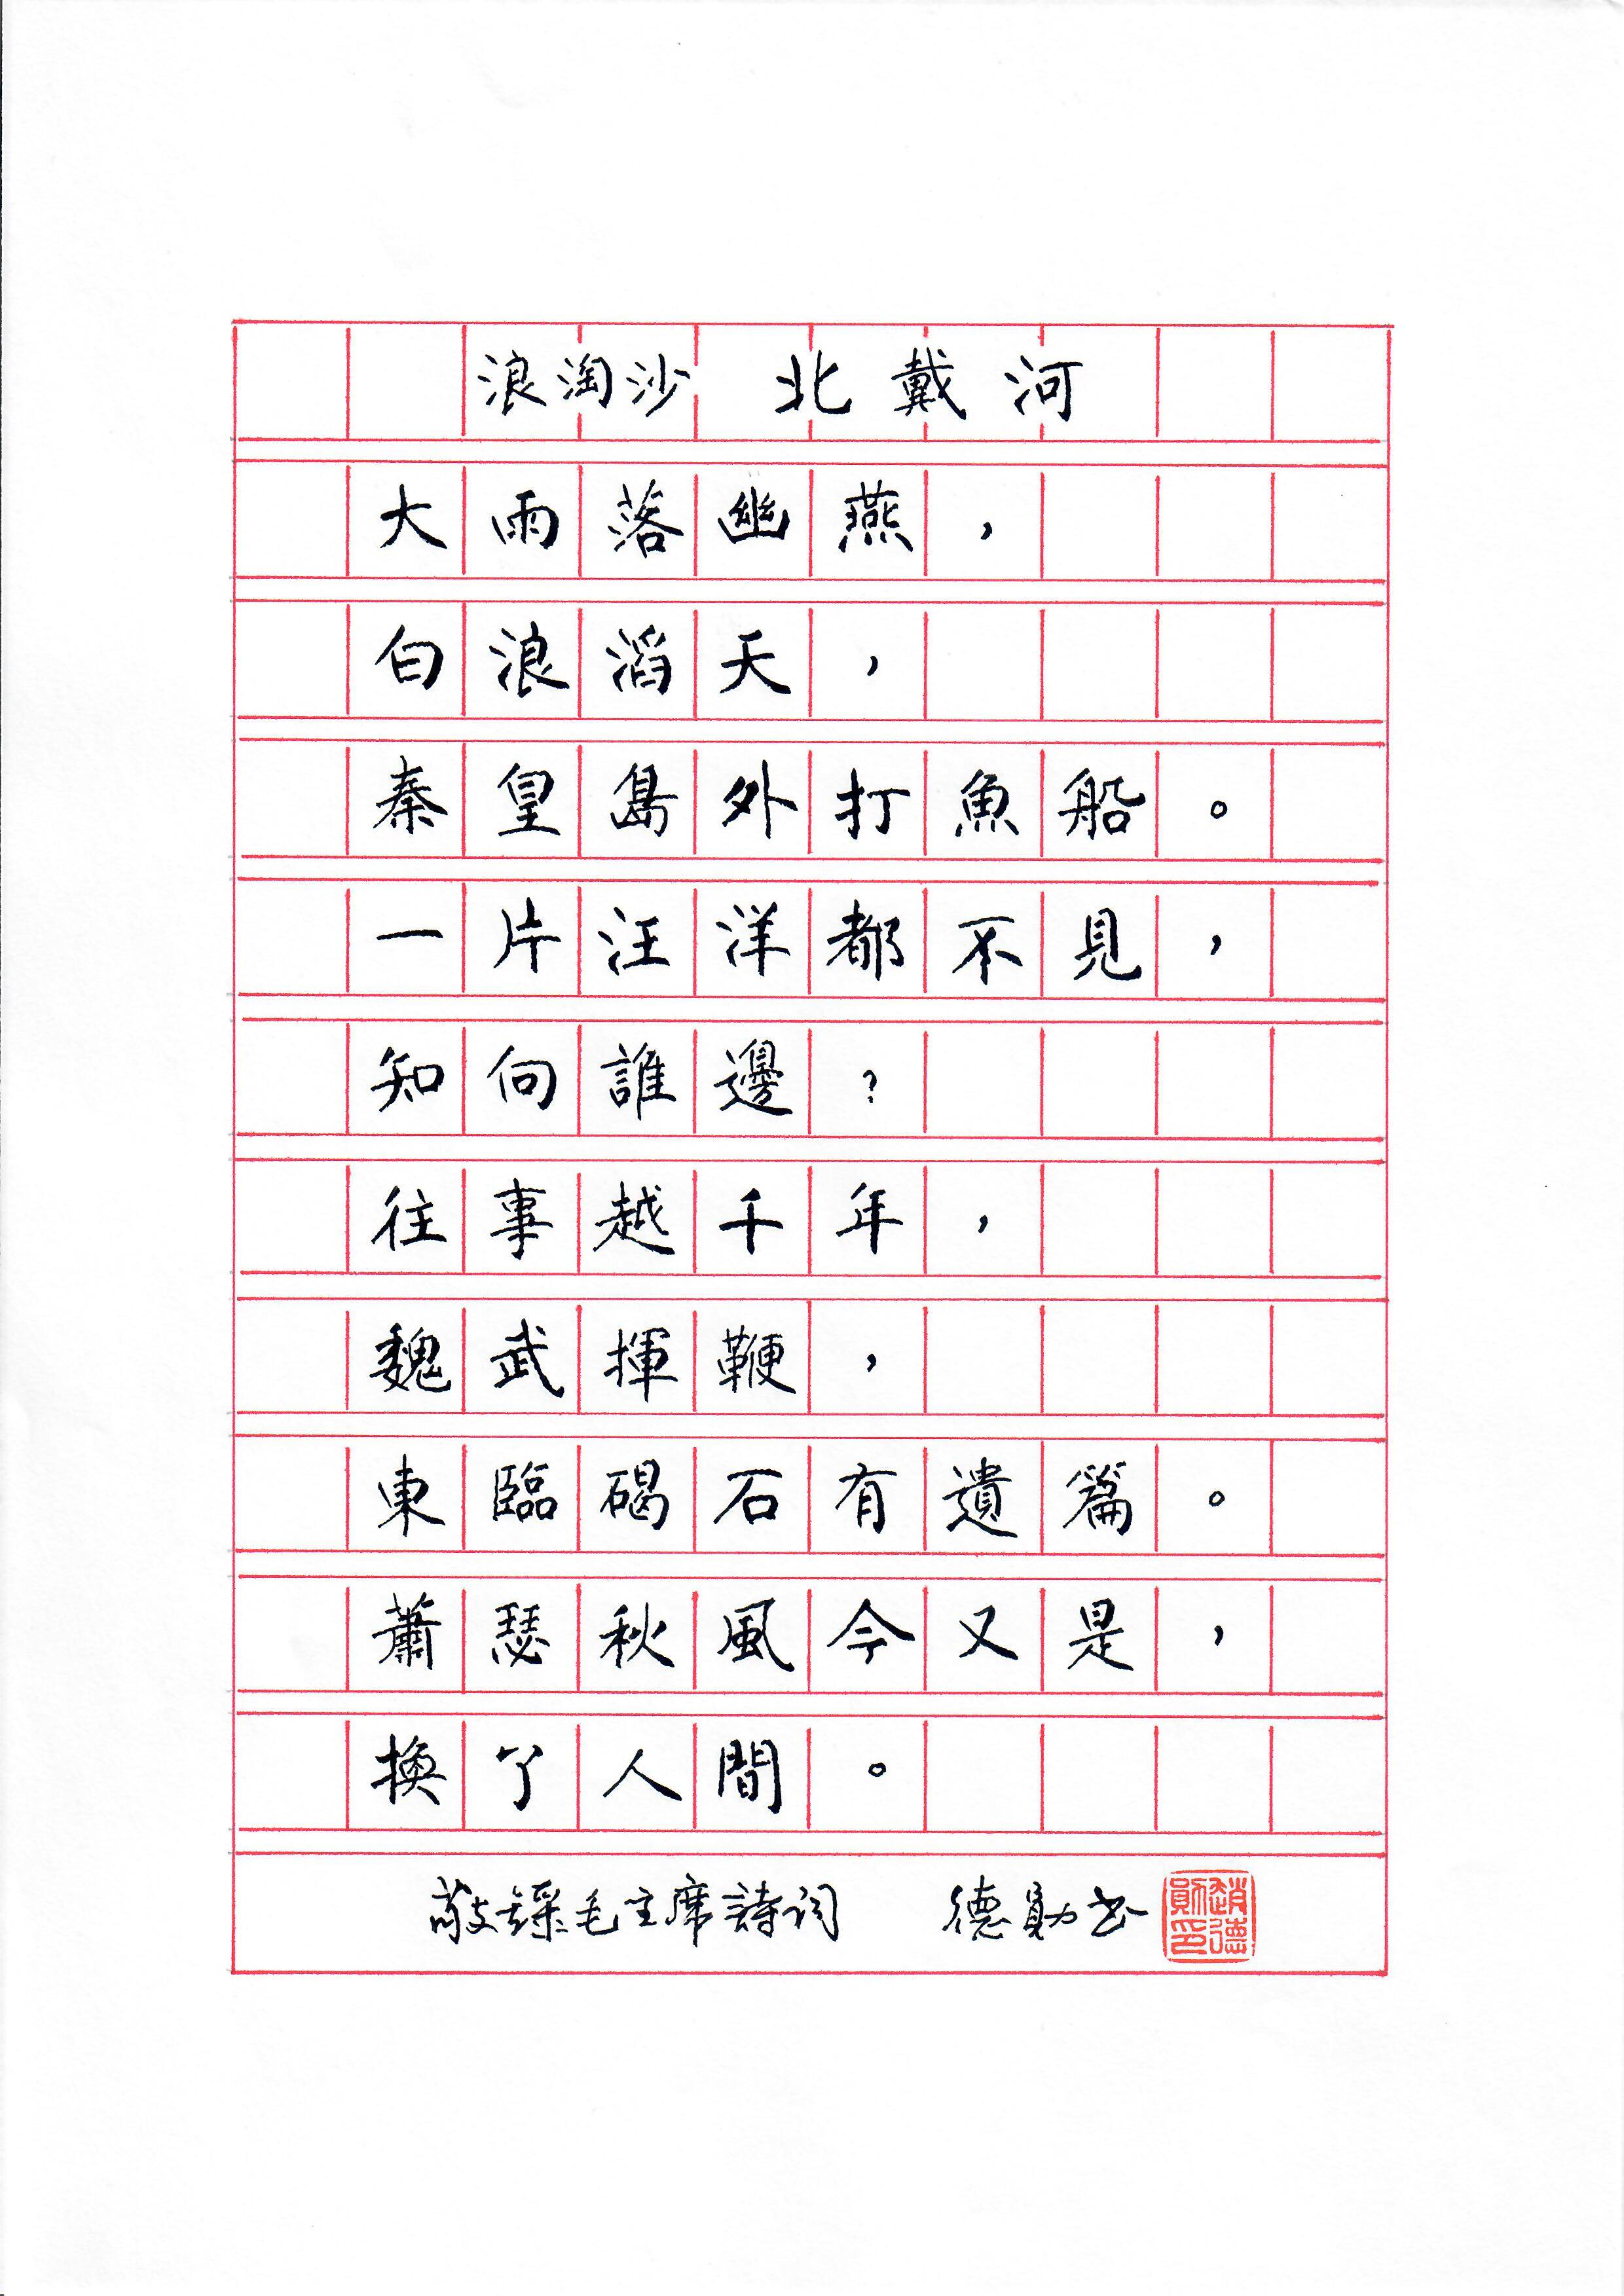 浪淘沙 北戴河
大雨落幽燕，
白浪滔天，
秦皇島外打魚船。
一片汪洋都不見，
知向誰邊？
往事越千年，
魏武揮鞭，
東臨碣石有遺篇。
蕭瑟秋風今又是，
換了人間。
敬録毛主席詩词 德勛书
趙德勛印